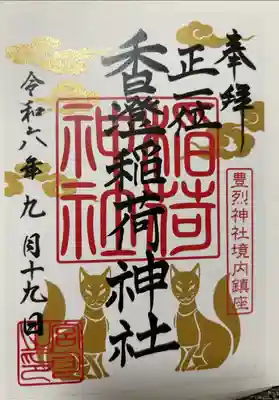 奉拝
正一位
香澄稲荷神社
稲荷神社
豊烈神社境内鎮座
令和六年九月十九日